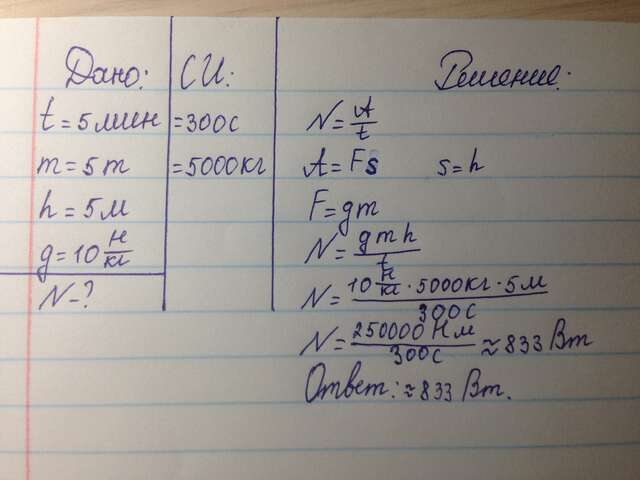 Дано:
t = 5 мин
m = 5 т
h = 5 м
g = 10 Н/кг
N - ?
СИ.
= 300с
= 5000кг
Решение.
N = A/t
A = Fs s = h
F = gm
N = gmh/t
N = 10 Н/кг · 5000кг · 5м / 300с
N = 250000 Нм / 300с ≈ 833 Вт
Ответ: ≈ 833 Вт.